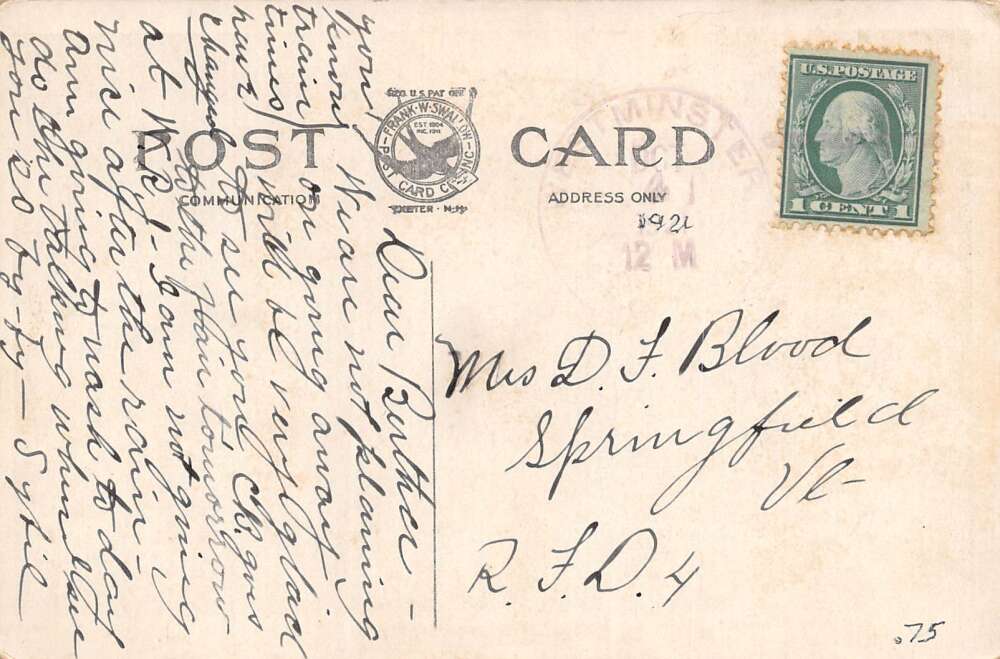 REG. U.S. PAT. OFF.
FRANK·W·SWALLOW
EST 1904
INC. 1911
POST CARD CO. INC.
EXETER - N·H·
POST CARD
COMMUNICATION
ADDRESS ONLY
U.S. POSTAGE
1 CENT 1
1921
12 M
Dear Bertha -
We are not planing
on going away
will be very glad
to see you. Ch. goes
to the Fair tomorrow
at W R J - I am not going
nice after the rain -
Am going to wash to day
do the talking when I see
you so by-by -
you
know
train
times
have
changed
Mrs D. F. Blood
Springfield
Vt -
R. F. D. 4
.75